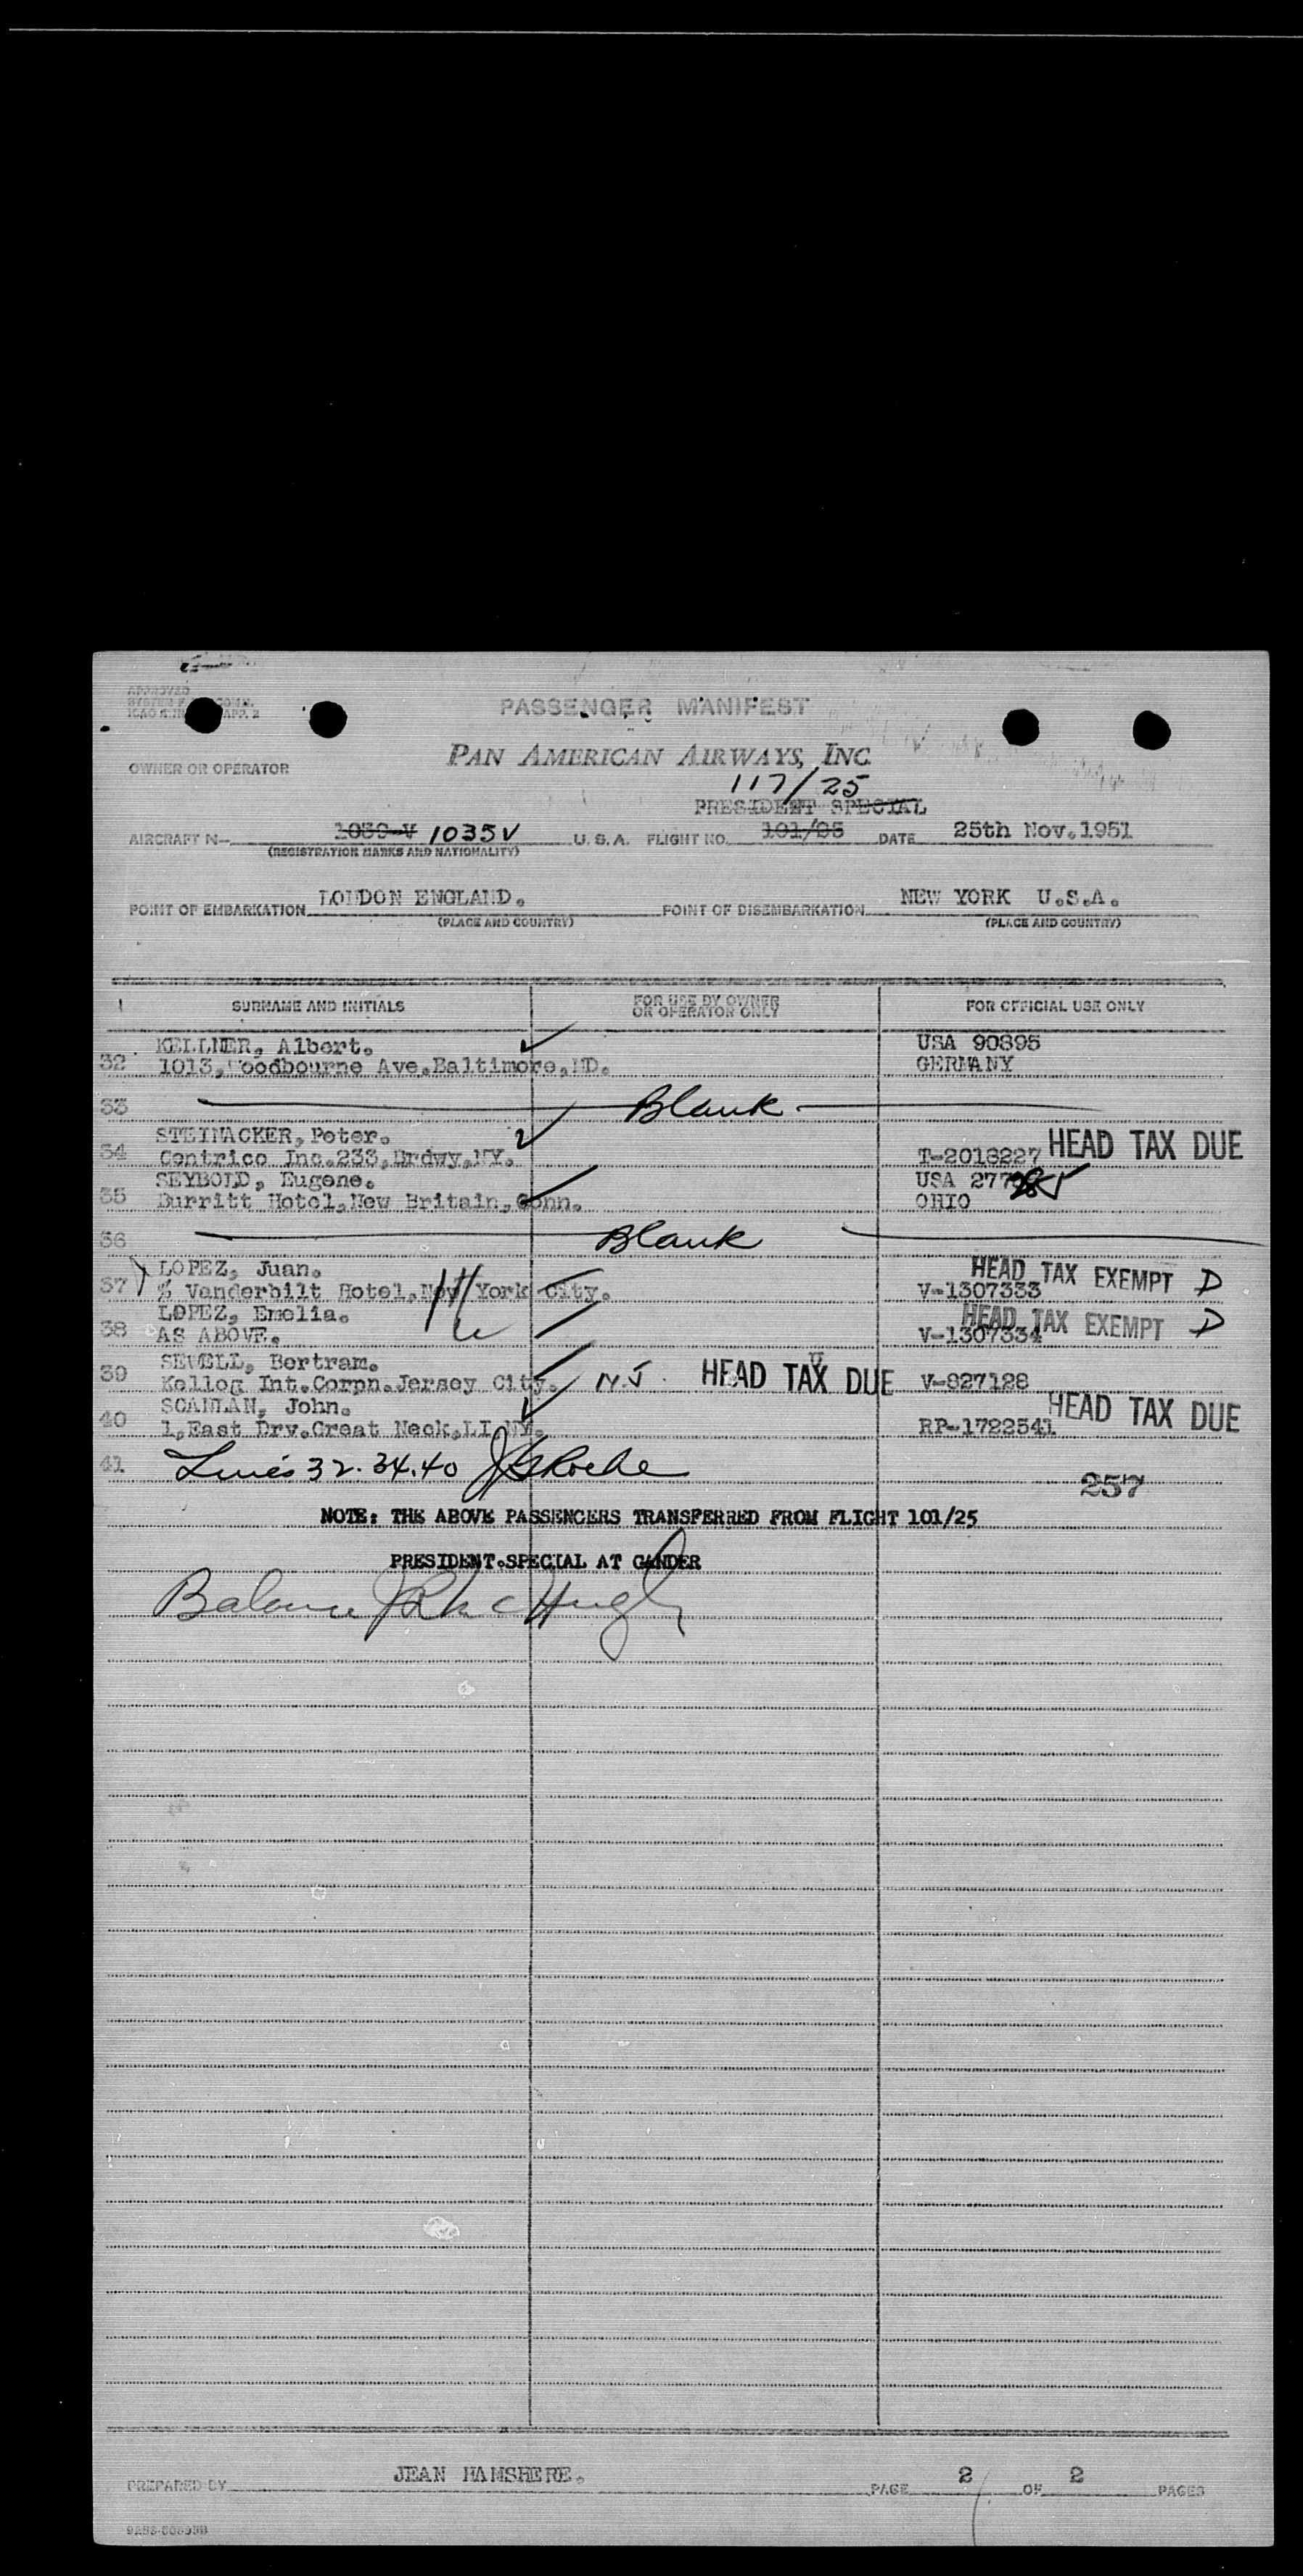 APPROVED
PASSENGER MANIFEST
PAN AMERICAN AIRWAYS, INC.
OWNER OR OPERATOR
117/25
PRESIDENT SPECIAL
AIRCRAFT N- 1039-V 1035V U.S.A. FLIGHT NO. 101/25 DATE 25th Nov.1951
(REGISTRATION MARKS AND NATIONALITY)
POINT OF EMBARKATION LONDON ENGLAND. POINT OF DISEMBARKATION NEW YORK U.S.A.
(PLACE AND COUNTRY) (PLACE AND COUNTRY)
SURNAME AND INITIALS FOR USE BY OWNER OR OPERATOR ONLY FOR OFFICIAL USE ONLY
KELLNER, Albert. USA 90895
32 1013, Woodbourne Ave.Baltimore,MD. GERMANY
33 Blank
STEINACKER, Peter. HEAD TAX DUE
34 Centrico Inc.233,Brdwy.NY. T-2018227
SEYBOLD, Eugene. USA 277
35 Burritt Hotel,New Britain,Conn. OHIO
36 Blank
LOPEZ, Juan. HEAD TAX EXEMPT D
37 % Vanderbilt Hotel,New York City. V-1307333
LOPEZ, Emelia. HEAD TAX EXEMPT D
38 AS ABOVE. V-1307334
SEWELL, Bertram.
39 Kellog Int.Corpn.Jersey City. N.J. HEAD TAX DUE V-827128
SCANLAN, John. HEAD TAX DUE
40 1,East Drv.Great Neck,LI.NY. RP-1722541
41 Lines 32.34.40 Roche 257
NOTE: THE ABOVE PASSENGERS TRANSFERRED FROM FLIGHT 101/25
PRESIDENT.SPECIAL AT GANDER
Balance McHugh
PREPARED BY JEAN HAMSHERE. PAGE 2 OF 2 PAGES